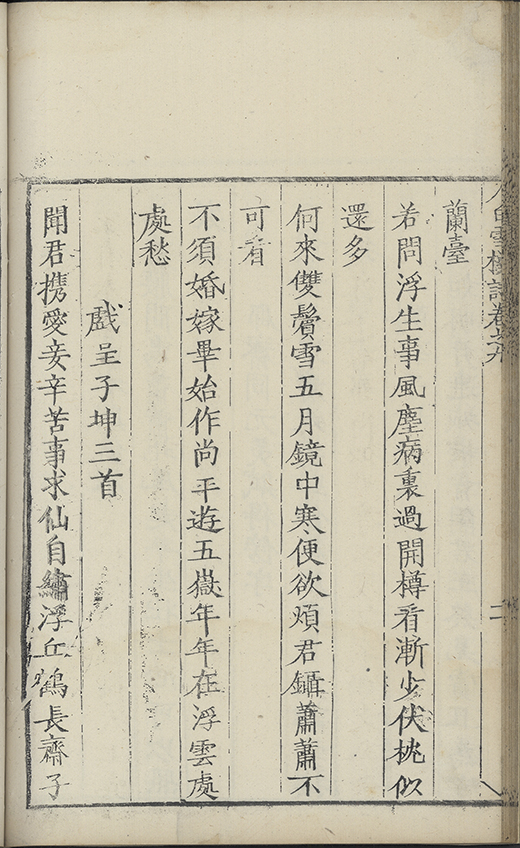 白雪樓詩卷
二
蘭臺
若問浮生事風塵病裏過開樽看漸少伏枕似
還多
何來雙鬢雪五月鏡中寒便欲煩君鑷蕭蕭不
可看
不須婚嫁畢始作尚平遊五嶽年年在浮雲處
處愁
戲呈子坤三首
聞君携愛妾辛苦事求仙自繡浮丘鶴長齋子